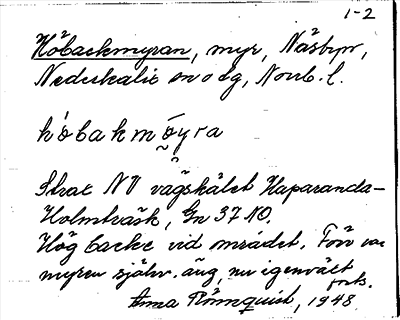 1-2
Höbackmyran, myr, Näsbyn,
Nederkalix sn o tg, Norrb. l.
hö́bakmø̀yra
Strax NV vägskälet Haparanda-
Holmträsk, Gr 37 NO.
Hög backe vid området. Förr var
myren självs. äng, nu igenväxt
Anna Rönnquist, 1948.